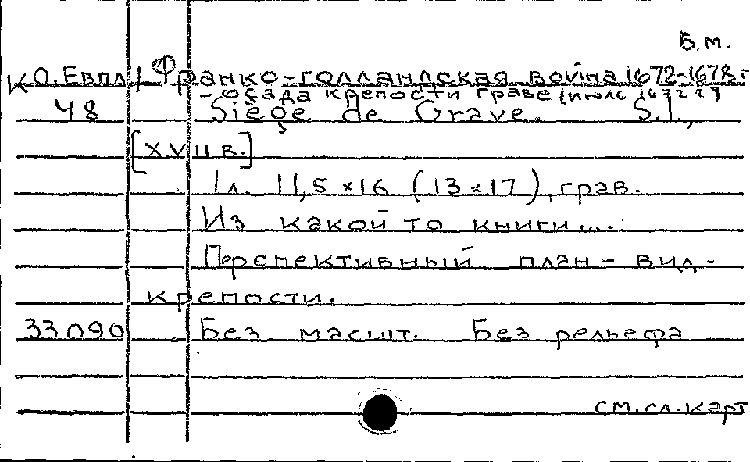 Б.м.
К О. Евпл/ Франко-голландская война 1672-1678 г
- осада крепости Граве (июль 1672 г)
48 Siège de Grave. S.l.,
[XVII в.]
1 л. 11,5 × 16 (13 × 17), грав.
Из какой то книги...
Перспективный план - вид -
крепости.
33.090 Без масшт. Без рельефа
см. сл. карт